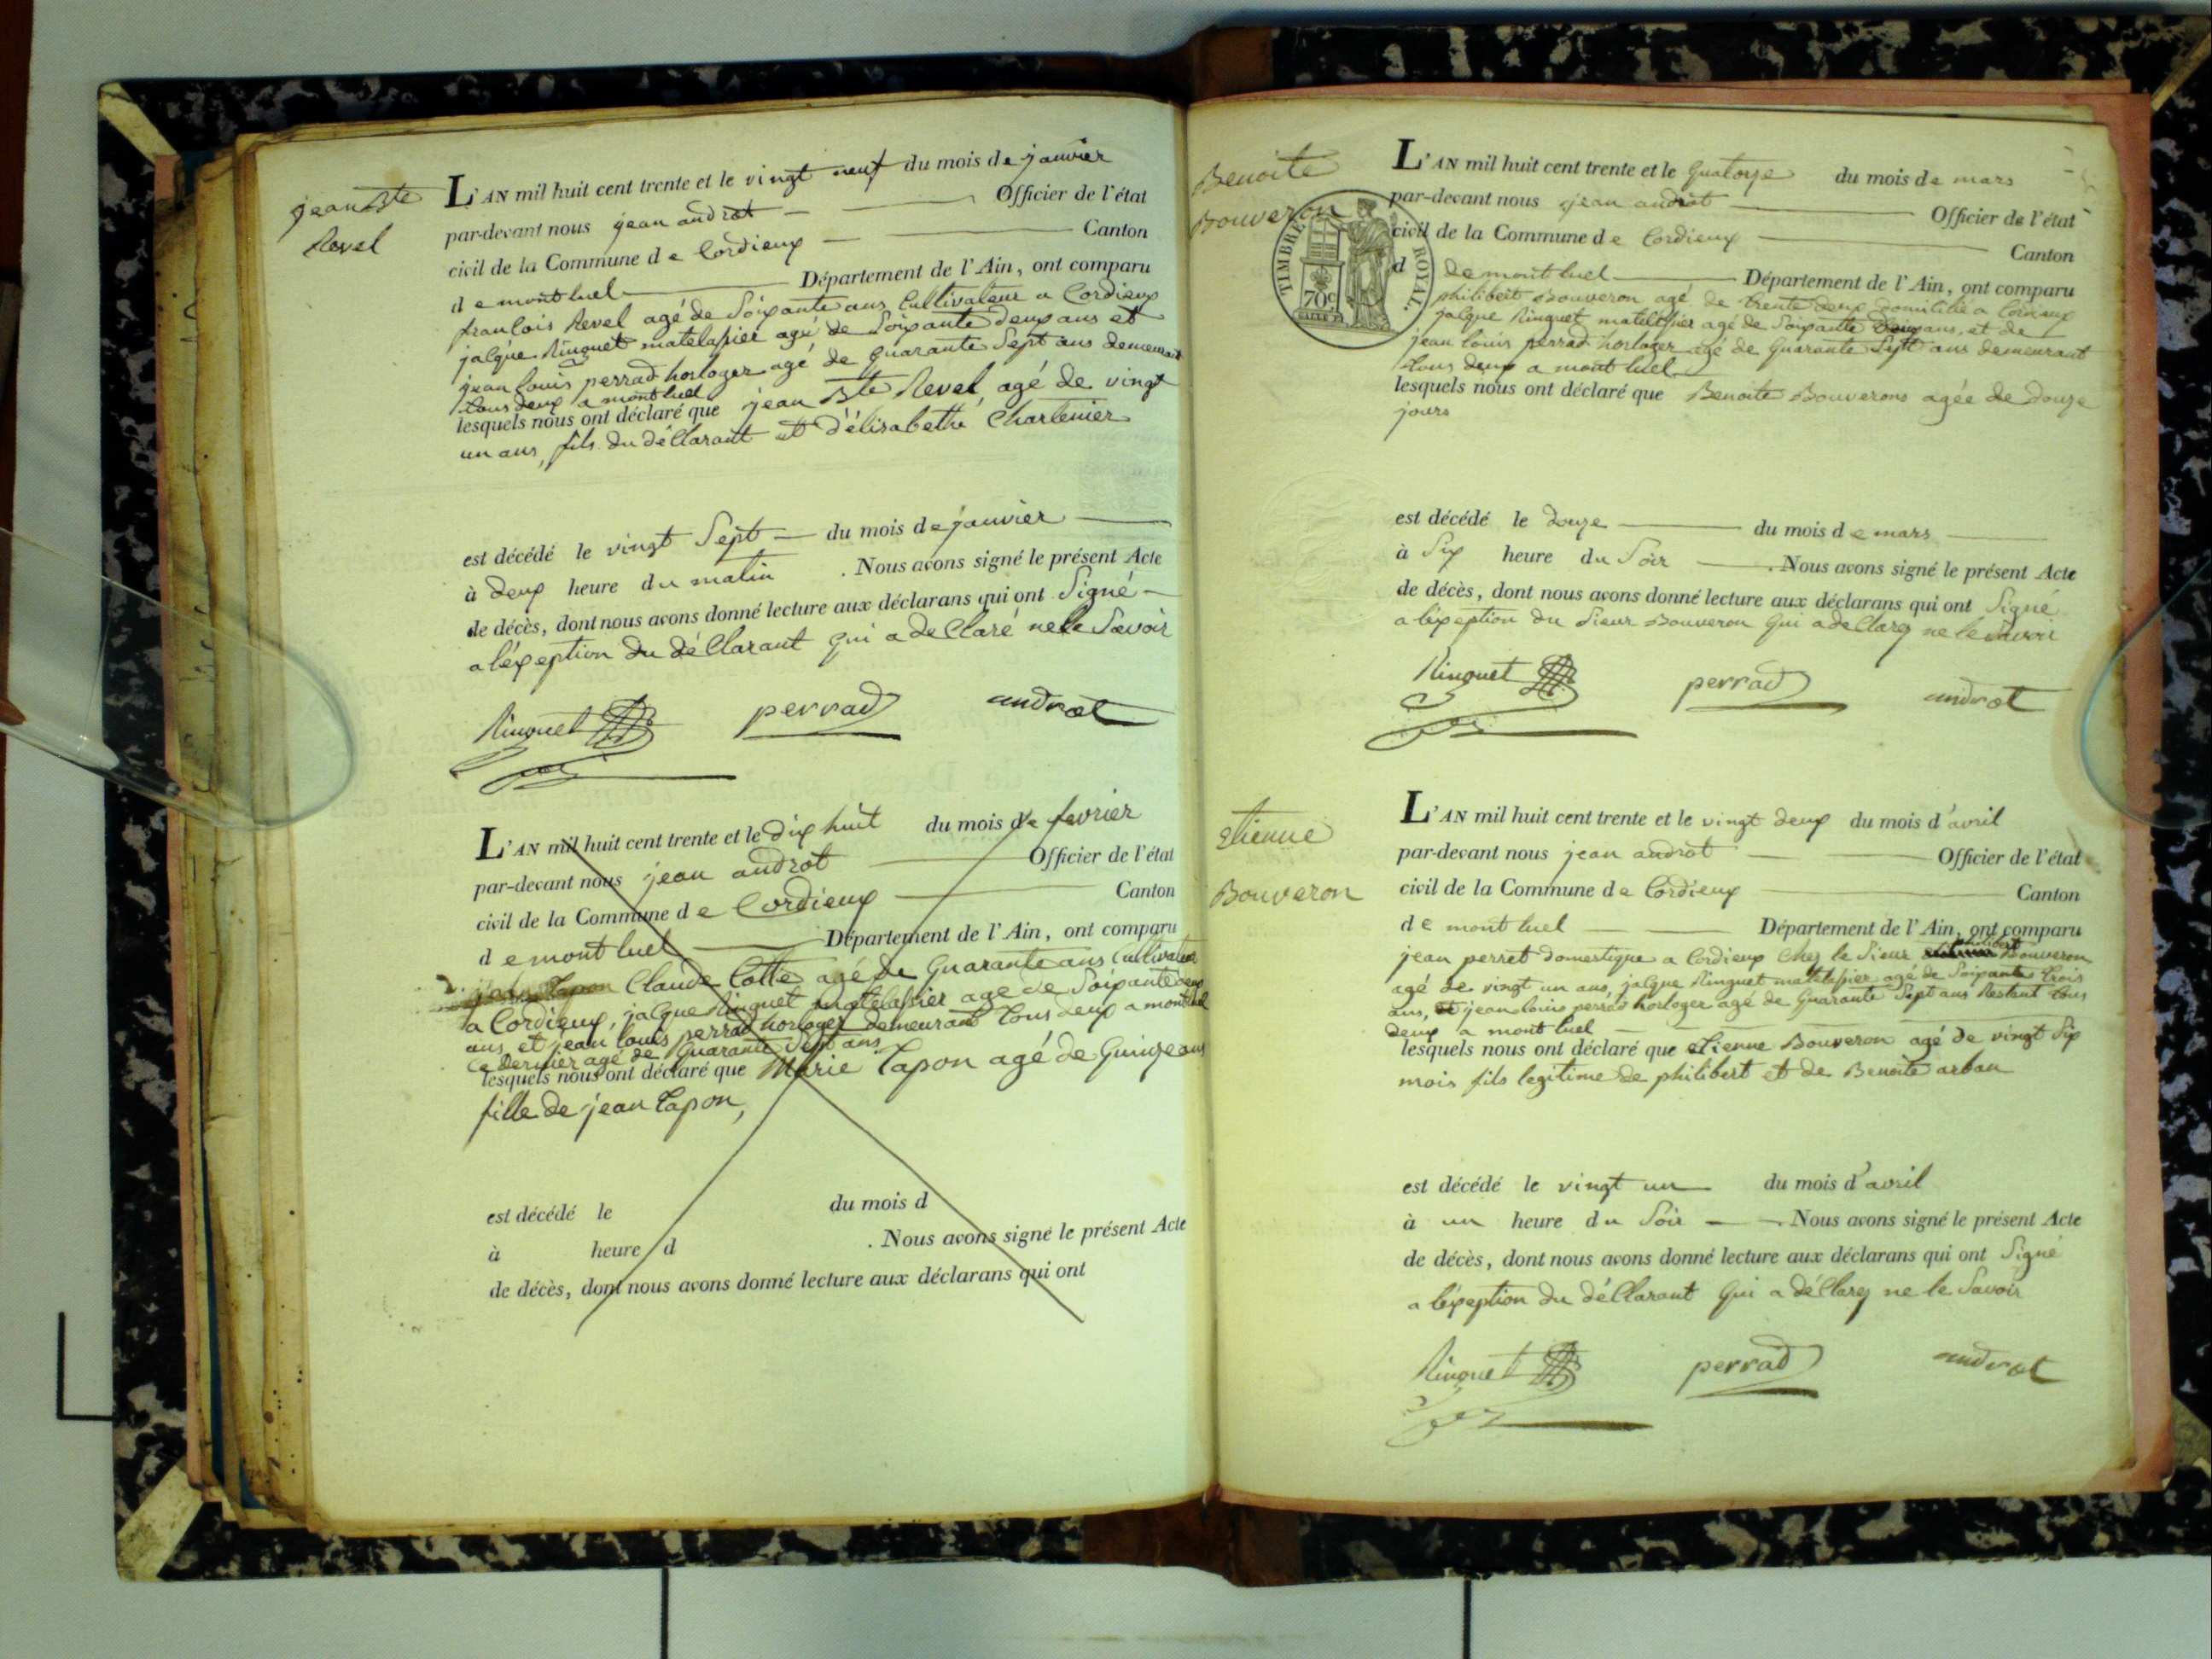 jean Bte
Revel
L'AN mil huit cent trente et le vingt neuf du mois de janvier
par-devant nous jean androt Officier de l'état
civil de la Commune de Cordieux Canton
de montluel Département de l'Ain, ont comparu
francois Revel agé de Soixante ans Cultivateur a Cordieux
jalque Ringuet matelassier agé de Soixante deux ans et
jean louis perrad horloger agé de quarante Sept ans demeurant
tous deux a montluel
lesquels nous ont déclaré que jean Bte Revel, agé de vingt
un ans, fils du déclarant et d'élisabethe Charlenier
est décédé le vingt Sept du mois de janvier
à deux heure du matin . Nous avons signé le présent Acte
de décès, dont nous avons donné lecture aux déclarans qui ont Signé
a l'exeption du déclarant qui a declaré ne le Savoir
Ringuet perrad androt
L'AN mil huit cent trente et le dix huit du mois de fevrier
par-devant nous jean androt Officier de l'état
civil de la Commune de Cordieux Canton
de montluel Département de l'Ain, ont comparu
jean Tapon Claude Cotte agé de quarante ans Cultivateur
a Cordieux, jalque Ringuet matelassier age de Soixante deux
ans, et jean louis perrad horloger demeurant tous deux a montluel
Ce dernier agé de quarante Sept ans
lesquels nous ont déclaré que Marie Tapon agé de quinze ans
fille de jean Tapon,
est décédé le du mois d
à heure d . Nous avons signé le présent Acte
de décès, dont nous avons donné lecture aux déclarans qui ont
Benoite
Bouveron
TIMBRE ROYAL.
70c
L'AN mil huit cent trente et le quatorze du mois de mars
par-devant nous jean androt Officier de l'état
civil de la Commune de Cordieux Canton
d de montluel Département de l'Ain, ont comparu
philibert Bouveron agé de trente deux domicilié a Cordieux
jalque Ringuet matelassier agé de Soixante deux ans, et de
jean louis perrad horloger agé de quarante Sept ans demeurant
tous deux a montluel
lesquels nous ont déclaré que Benoite Bouverons agée de douze
jours
est décédé le douze du mois de mars
à Six heure du Soir . Nous avons signé le présent Acte
de décès, dont nous avons donné lecture aux déclarans qui ont Signé
a l'exeption du Sieur Bouveron qui a declarez ne le Savoir
Ringuet perrad androt
Etienne
Bouveron
L'AN mil huit cent trente et le vingt deux du mois d'avril
par-devant nous jean androt Officier de l'état
civil de la Commune de Cordieux Canton
de montluel Département de l'Ain, ont comparu
jean perret domestique a Cordieux Chez le Sieur philibert Bouveron
agé de vingt un ans, jalque Ringuet matelassier agé de Soixante trois
ans, et jean louis perrad horloger agé de quarante Sept ans Restant tous
deux a montluel
lesquels nous ont déclaré que etienne Bouveron agé de vingt Six
mois fils legitime de philibert et de Benoite arban
est décédé le vingt un du mois d'avril
à un heure du Soir . Nous avons signé le présent Acte
de décès, dont nous avons donné lecture aux déclarans qui ont Signé
a l'exeption du déclarant qui a déclarez ne le Savoir
Ringuet perrad androt